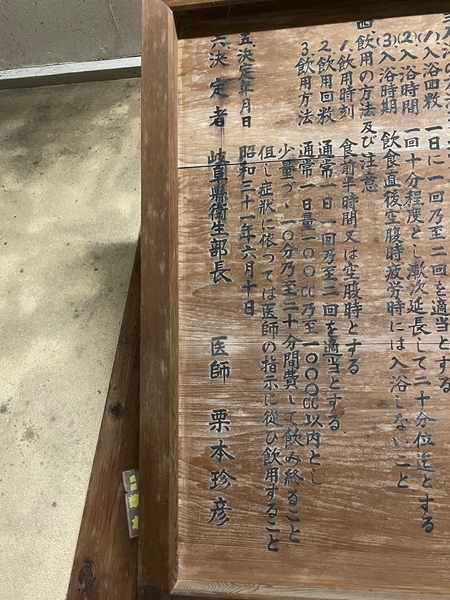 三入浴の方法
(1)入浴回数 一日に一回乃至二回を適当とする
(2)入浴時間 一回十分程度とし漸次延長して二十分位迄とする
(3)入浴時期 飲食直後空腹時疲労時には入浴しないこと
四飲用の方法及び注意
1.飲用時刻 食前半時間又は空腹時とする
2.飲用回数 通常一日一回乃至二回を適当とする
3.飲用方法 通常一日量一〇〇cc乃至一〇〇〇cc以内とし
少量づゝ一〇分乃至二十分間費して飲み終ること
但し症状に依つては医師の指示に従ひ飲用すること
五決定年月日 昭和三十一年六月十日
六決定者 岐阜縣衛生部長 医師 栗本珍彦